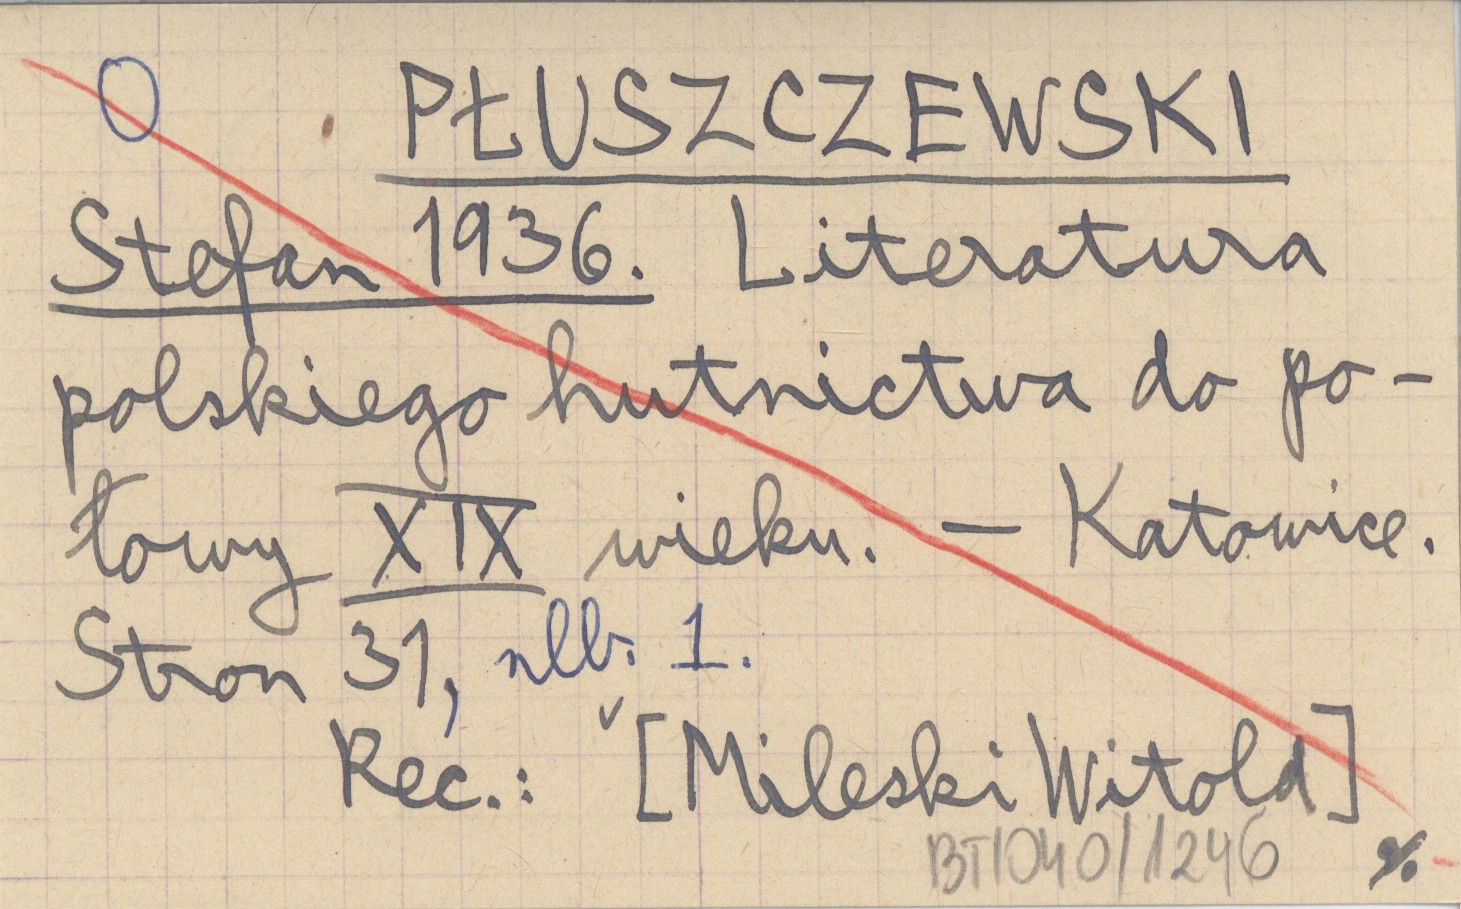 PŁUSZCZEWSKI
Stefan 1936. Literatura
polskiego hutnictwa do po-
łowy XIX wieku. — Katowice.
Stron 31, nlb. 1.
Rec.: [Mileski Witold]
BT/040/1246
%